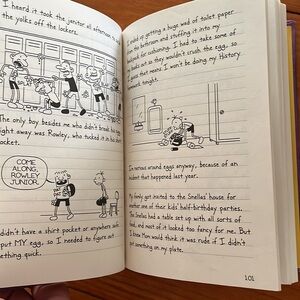 I heard it took the janitor all afternoon to
the yolks off the lockers.
The only boy besides me who didn't break his egg
right away was Rowley, who tucked it in his shirt
pocket.
COME
ALONG,
ROWLEY
JUNIOR.
I didn't have a shirt pocket or anywhere safe
put MY egg, so I needed to figure out
something quick.
I ended up getting a huge wad of toilet paper
from the bathroom and stuffing it into my
backpack for cushioning. I had to take some of
books out so they wouldn't crush the egg, so
I guess that means I won't be doing my History
homework tonight.
I'm nervous around eggs anyway, because of an
incident that happened last year.
My family got invited to the Snellas' house for
another one of their kids' half-birthday parties.
The Snellas had a table set up with all sorts of
food, and most of it looked too fancy for me. But
I knew Mom would think it was rude if I didn't
put something on my plate.
101